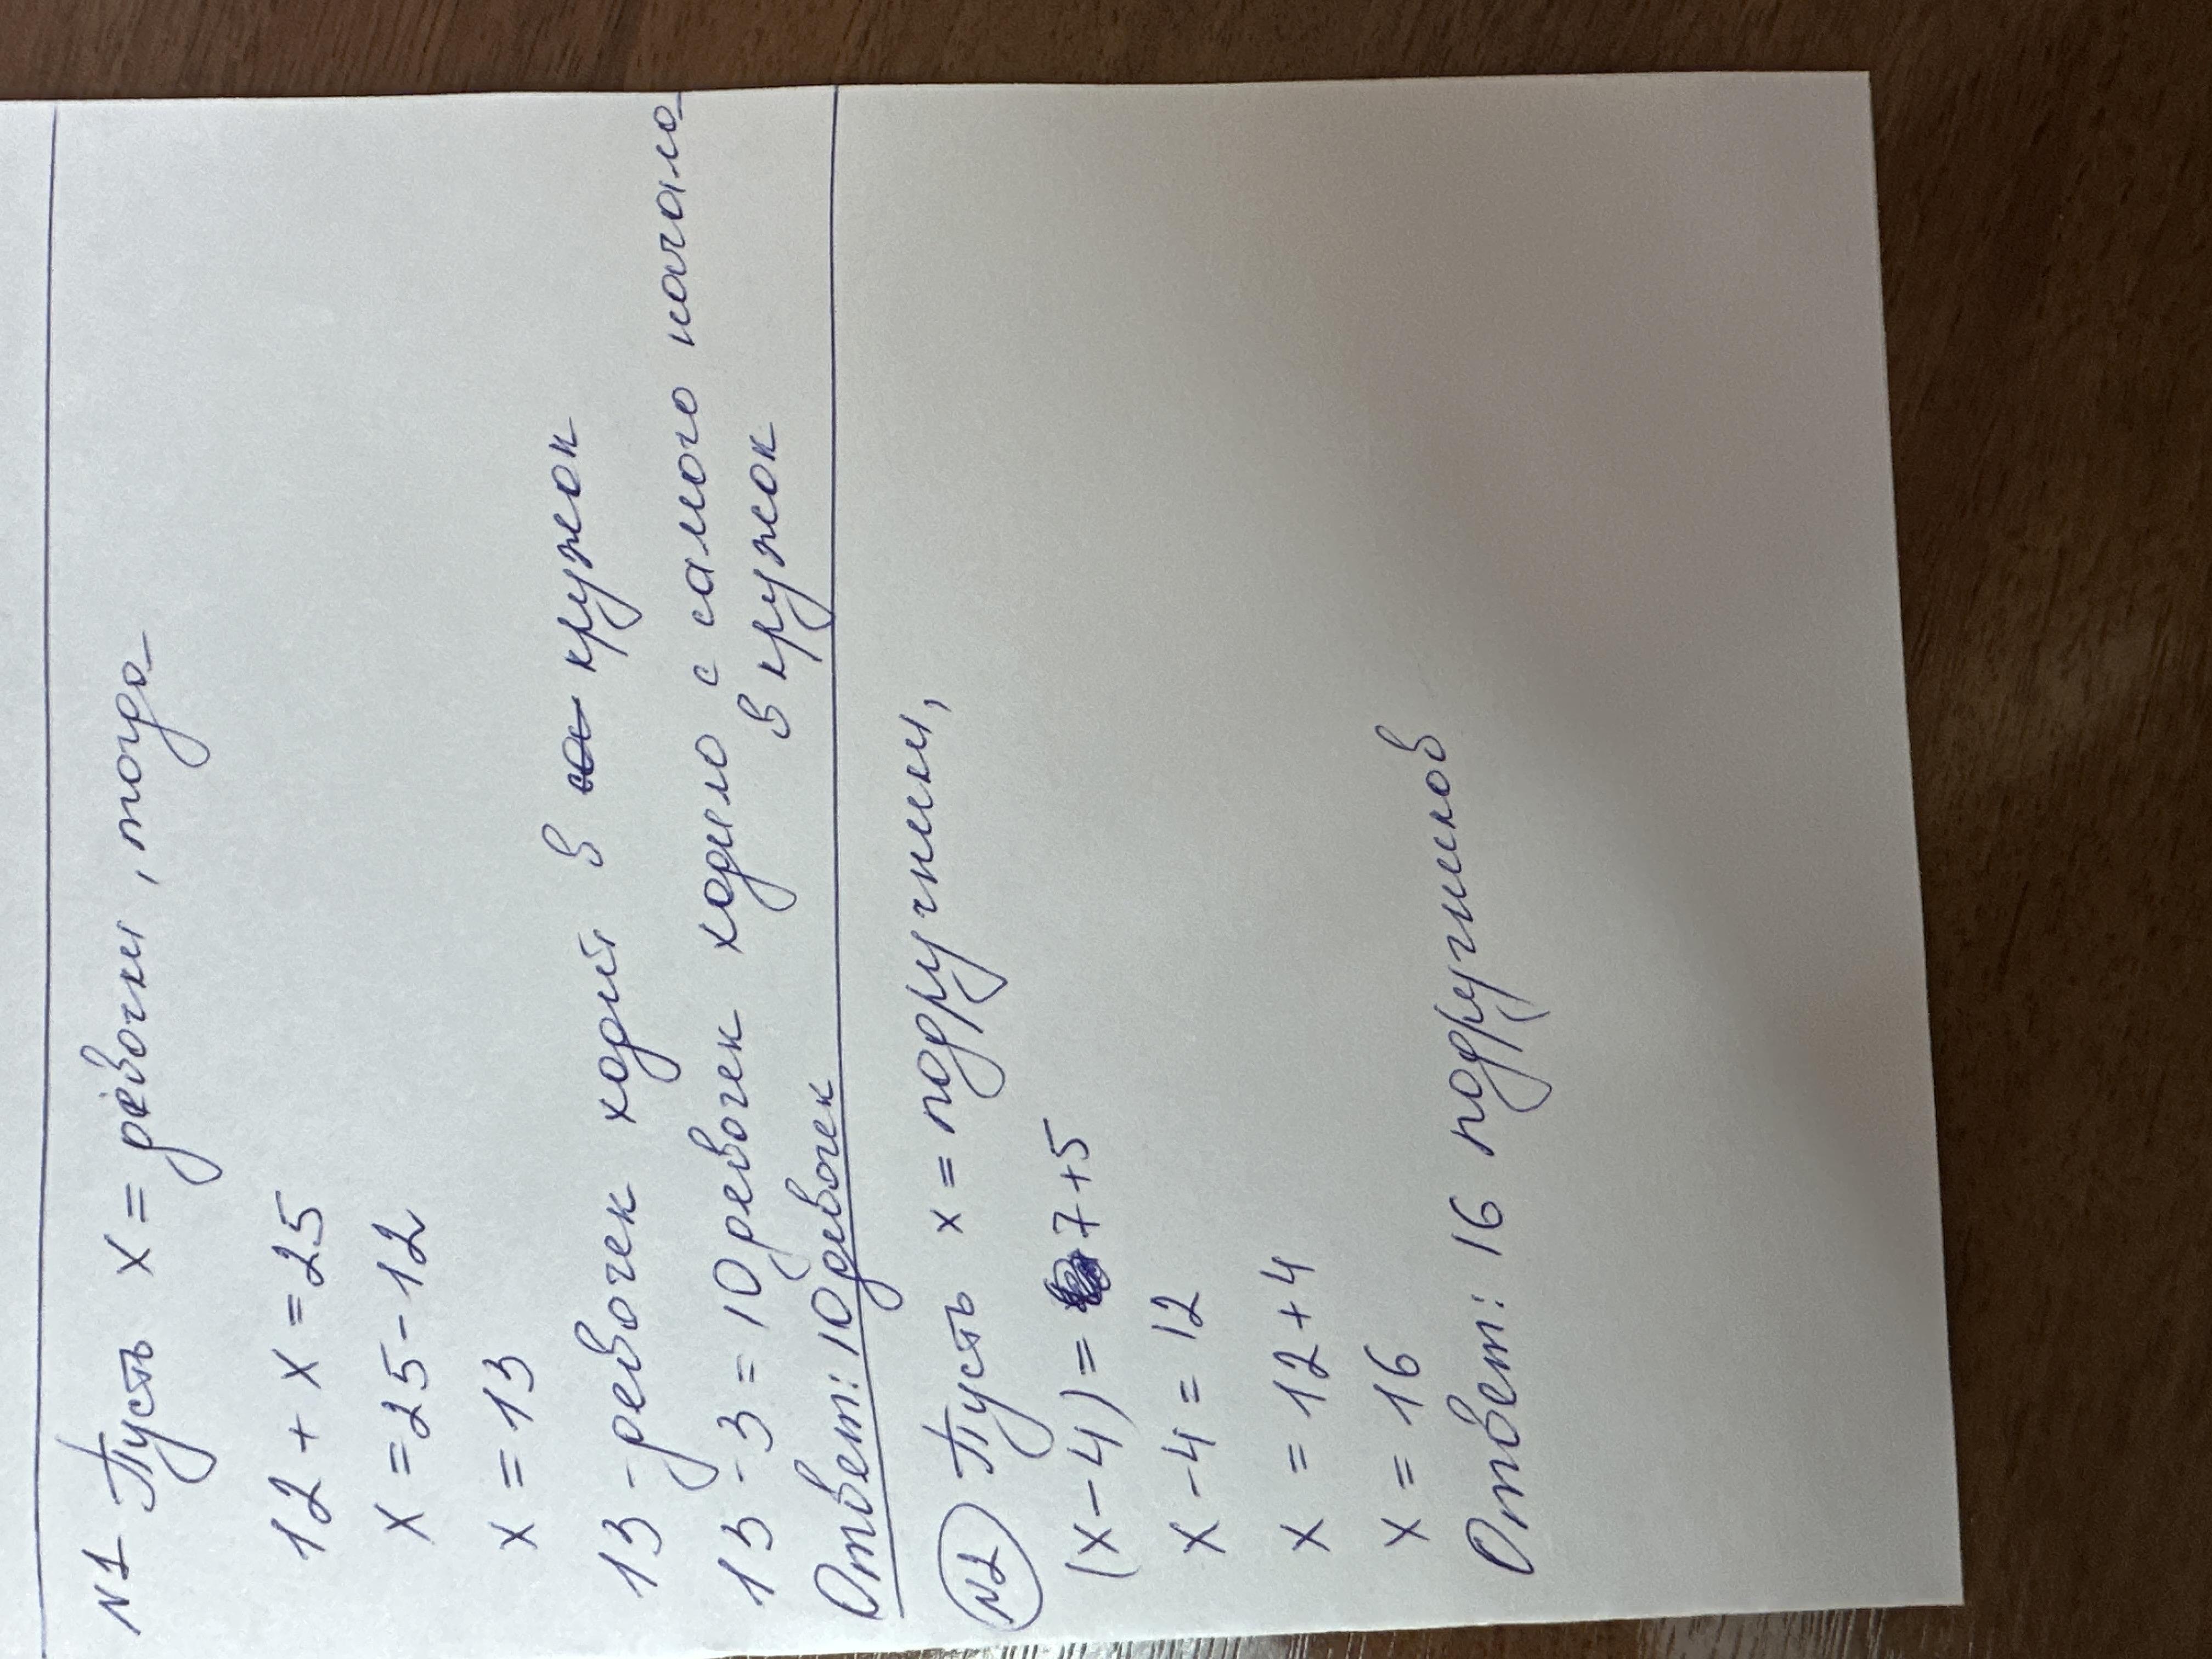 №1 Пусть х = девочки, тогда
12 + х = 25
х = 25 - 12
х = 13
13 - девочек ходит в кружок
13 - 3 = 10 девочек ходило с самого начала
в кружок
Ответ: 10 девочек
№2 Пусть х = подружики,
(х - 4) = 7+5
х - 4 = 12
х = 12 + 4
х = 16
Ответ: 16 подружиков